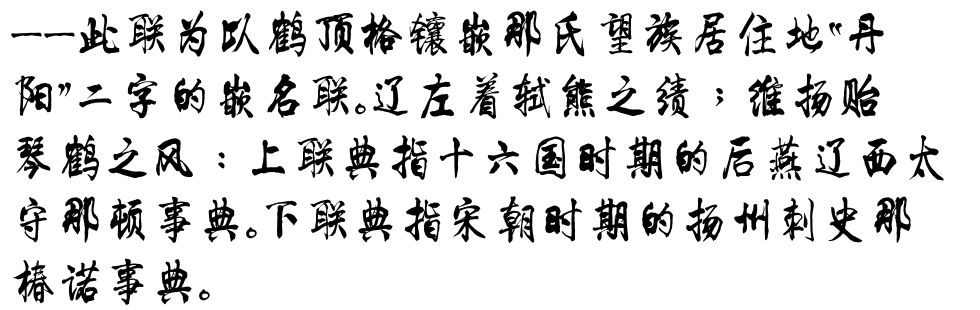 ——此联为以鹤顶格镶嵌那氏望族居住地“丹
阳”二字的嵌名联。辽左着轼熊之绩；维扬贻
琴鹤之风：上联典指十六国时期的后燕辽西太
守那顿事典。下联典指宋朝时期的扬州刺史那
椿诺事典。